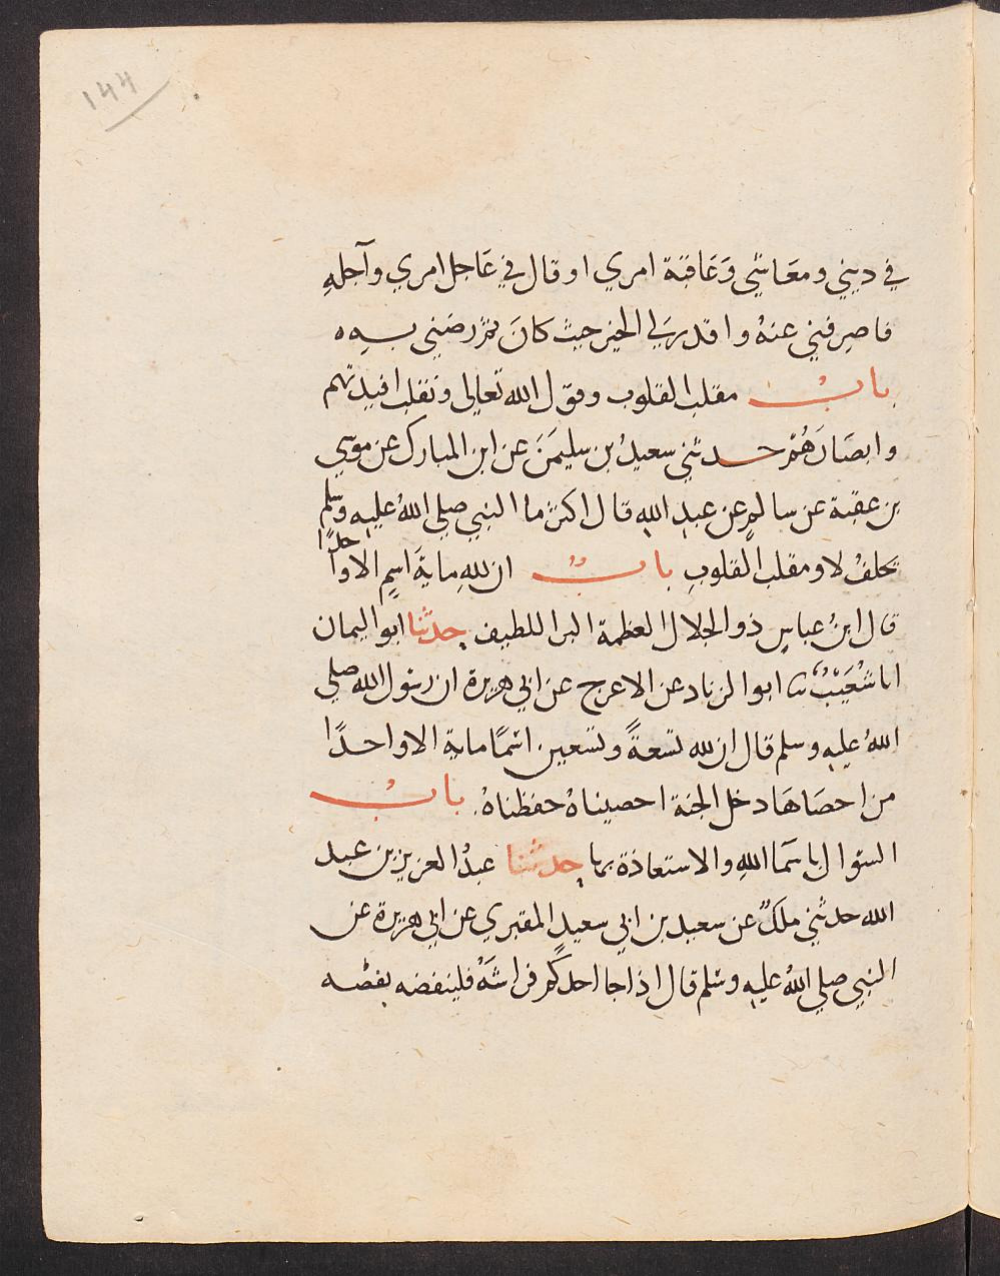 ١٤٤
في ديني ومعَاشي وَعَاقبَة امري او قال في عَاجل امري وآجلهِ
فاصرفني عنهُ واقدر لي الخير حيث كانَ ثم رضني بـــه ه
بابٌ مقلب القلوب وقول الله تعالى ونقلب افيدتهم
وابصَارَهُمْ حدثني سعيدُ بن سليمَنَ عن ابن المبارك عن موسى
بن عقبة عن سالمٍ عن عبدِ اللهِ قال اكثر ما النبي صلى اللهُ عليهِ وسلم
يحلفُ لا ومقلب القلوبِ بابٌ ان للهِ ماية اسمٍ الا واحدًا
قال ابنُ عباسٍ ذو الجلال العظمة البر اللطيف حدثنا ابو اليمان
انا شُعَيْبٌ ثنا ابو الزناد عن الاعرج عن ابي هريرة ان رسول الله صلى
اللهُ عليهِ وسلم قال ان لله تسعةً وتسعين اسمًا ماية الا واحدًا
من احصَاهَا دخل الجنة احصيناهُ حفظناهُ. بابٌ
السوال باسمَا اللهِ والاستعاذة بها حدثنا عبدُ العزيز بن عبد
الله حدثني ملكٌ عن سعيد بن ابي سعيدٍ المقبري عن ابي هريرة عن
النبي صلى اللهُ عليهِ وسلم قال اذا جا احدكم فراشهُ فلينفضه بفضه